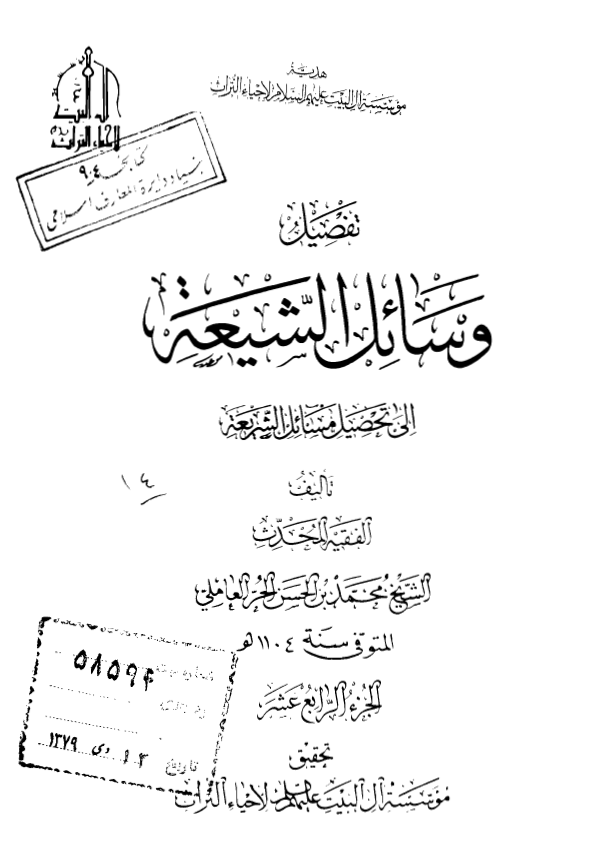 هدية
مؤسسة آل البيت عليهم السلام لإحياء التراث
آل البيت
لإحياء التراث
كتابخانه
بنياد دايرة المعارف اسلامى
تفصيل
وسائل الشيعة
إلى تحصيل مسائل الشريعة
١٤
تأليف
الفقيه المحدّث
الشيخ محمّد بن الحسن الحرّ العاملي
المتوفى سنة ١١٠٤ هـ
الجزء الرابع عشر
شماره ثبت ۵۸۵۹۴
تاريخ ۱۳ دى ۱۳۷۹
تحقيق
مؤسسة آل البيت عليهم السلام لإحياء التراث